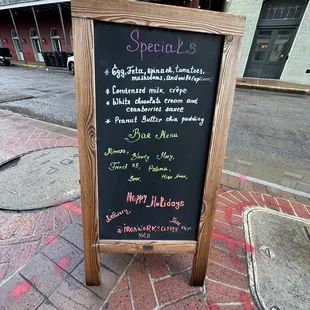 Specials
+ Egg, Feta, spinach, tomatoes,
mushrooms and avocado
• Condensed milk crêpe
• White chocolate cream and
cranberries sauce
• Peanut Butter chia pudding
Bar Menu
Mimosa, Bloody Mary,
French 75, Paloma,
Beer,
Happy Holidays
Delivery
@IRONWORKSCOFFEE
NOLA